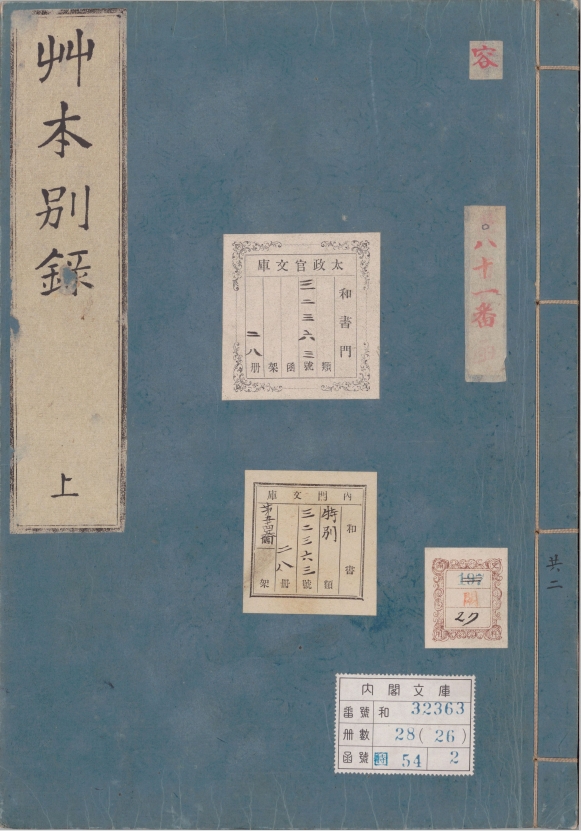 艸本別録
上
容
八十一番
太政官文庫
和書門
三二三六三
二八
類號函架册
内閣文庫
和書
特別
三二三六三
二八
類號冊架
197
27
共二
内閣文庫
番號 和 32363
册數 28(26)
函號 特 54 2